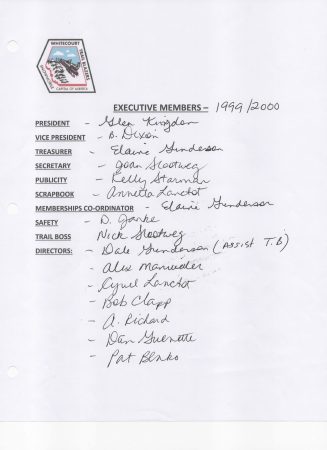 WHITECOURT
TRAIL BLAZERS
SNOWMOBILE
CAPITAL OF AMERICA
EXECUTIVE MEMBERS – 1999/2000
PRESIDENT - Glen Kingdon
VICE PRESIDENT - B. Dixon
TREASURER - Elaine Gunderson
SECRETARY - Joan Slootweg
PUBLICITY - Kelly Starman
SCRAPBOOK - Annetta Lanctot
MEMBERSHIPS CO-ORDINATOR - Elaine Gunderson
SAFETY - D. Janke
TRAIL BOSS Nick Slootweg
DIRECTORS: - Dale Gunderson (Assist T.B)
- Alex
- Cyril Lanctot
- Bob Clapp
- A. Richard
- Dan Guenette
- Pat Blnko